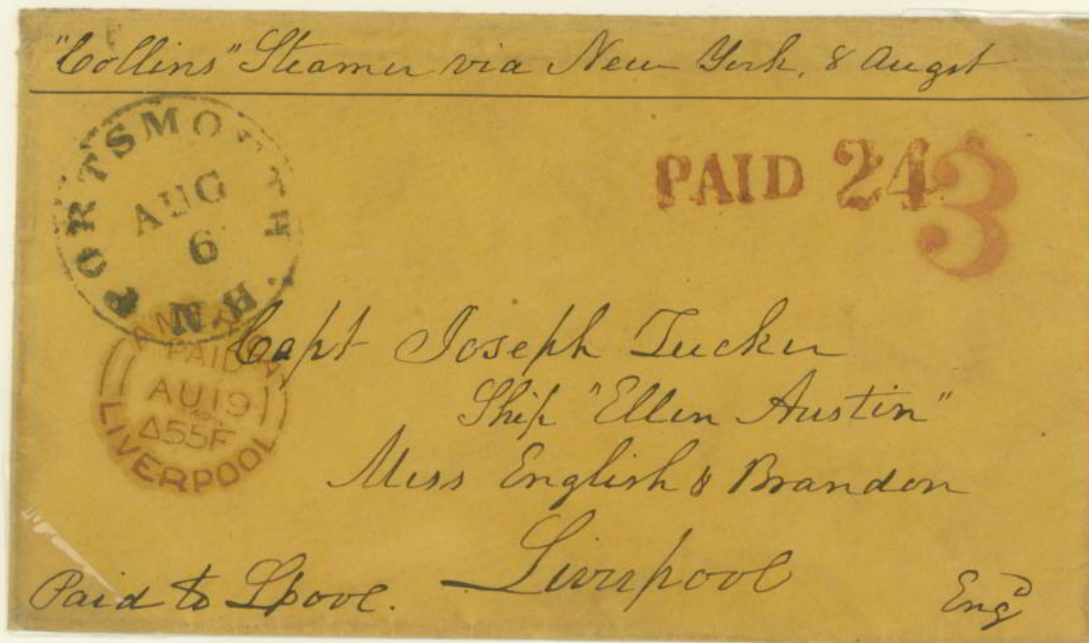 "Collins" Steamer via New York, 8 Augst
PORTSMOUTH N.H
AUG
6
PAID 24
3
AMERICA
PAID
AU 19
Δ55F
LIVERPOOL
Capt Joseph Tucker
Ship "Ellen Austin"
Mess English & Brandon
Liverpool
Engd
Paid to Lpool.